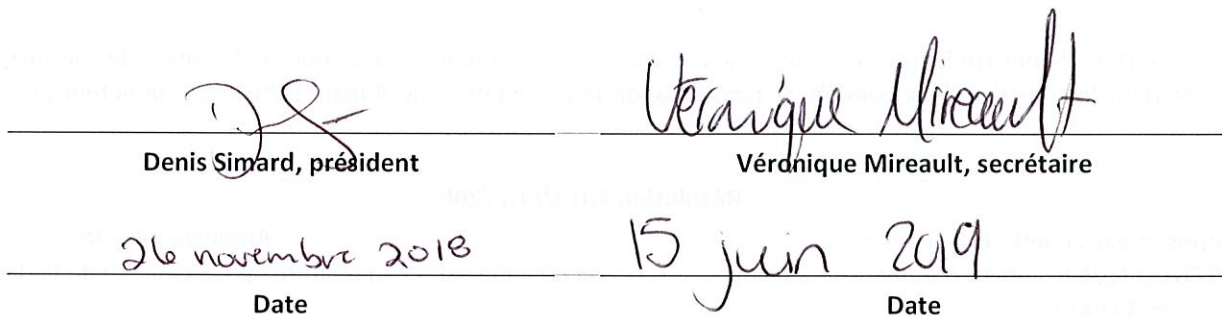 Véronique Mireault
Denis Simard, président
Véronique Mireault, secrétaire
26 novembre 2018
15 juin 2019
Date
Date